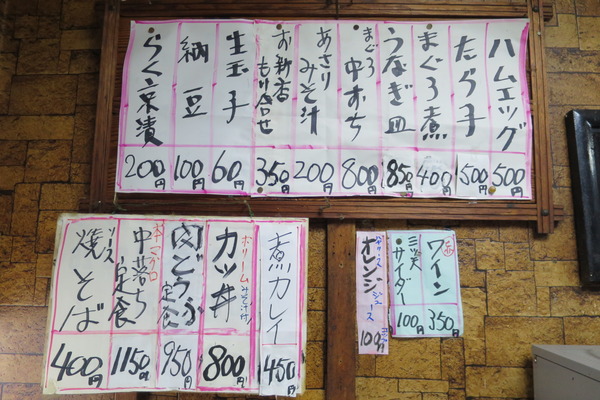 ハムエッグ
500円
たら子
500円
まぐろ煮
400円
うなぎ皿
850円
まぐろ
中おち
800円
あさり
みそ汁
200円
お新香
もり合せ
350円
生玉子
60円
納豆
100円
らっ京漬
200円
煮カレイ
450円
カツ丼
ボリーム
みそ汁付
800円
肉どうふ
定食
950円
中落ち
定食
1150円
ソース
焼そば
400円
赤
ワイン
350円
三ツ矢
サイダー
100円
オレンジ
ジュース
100円